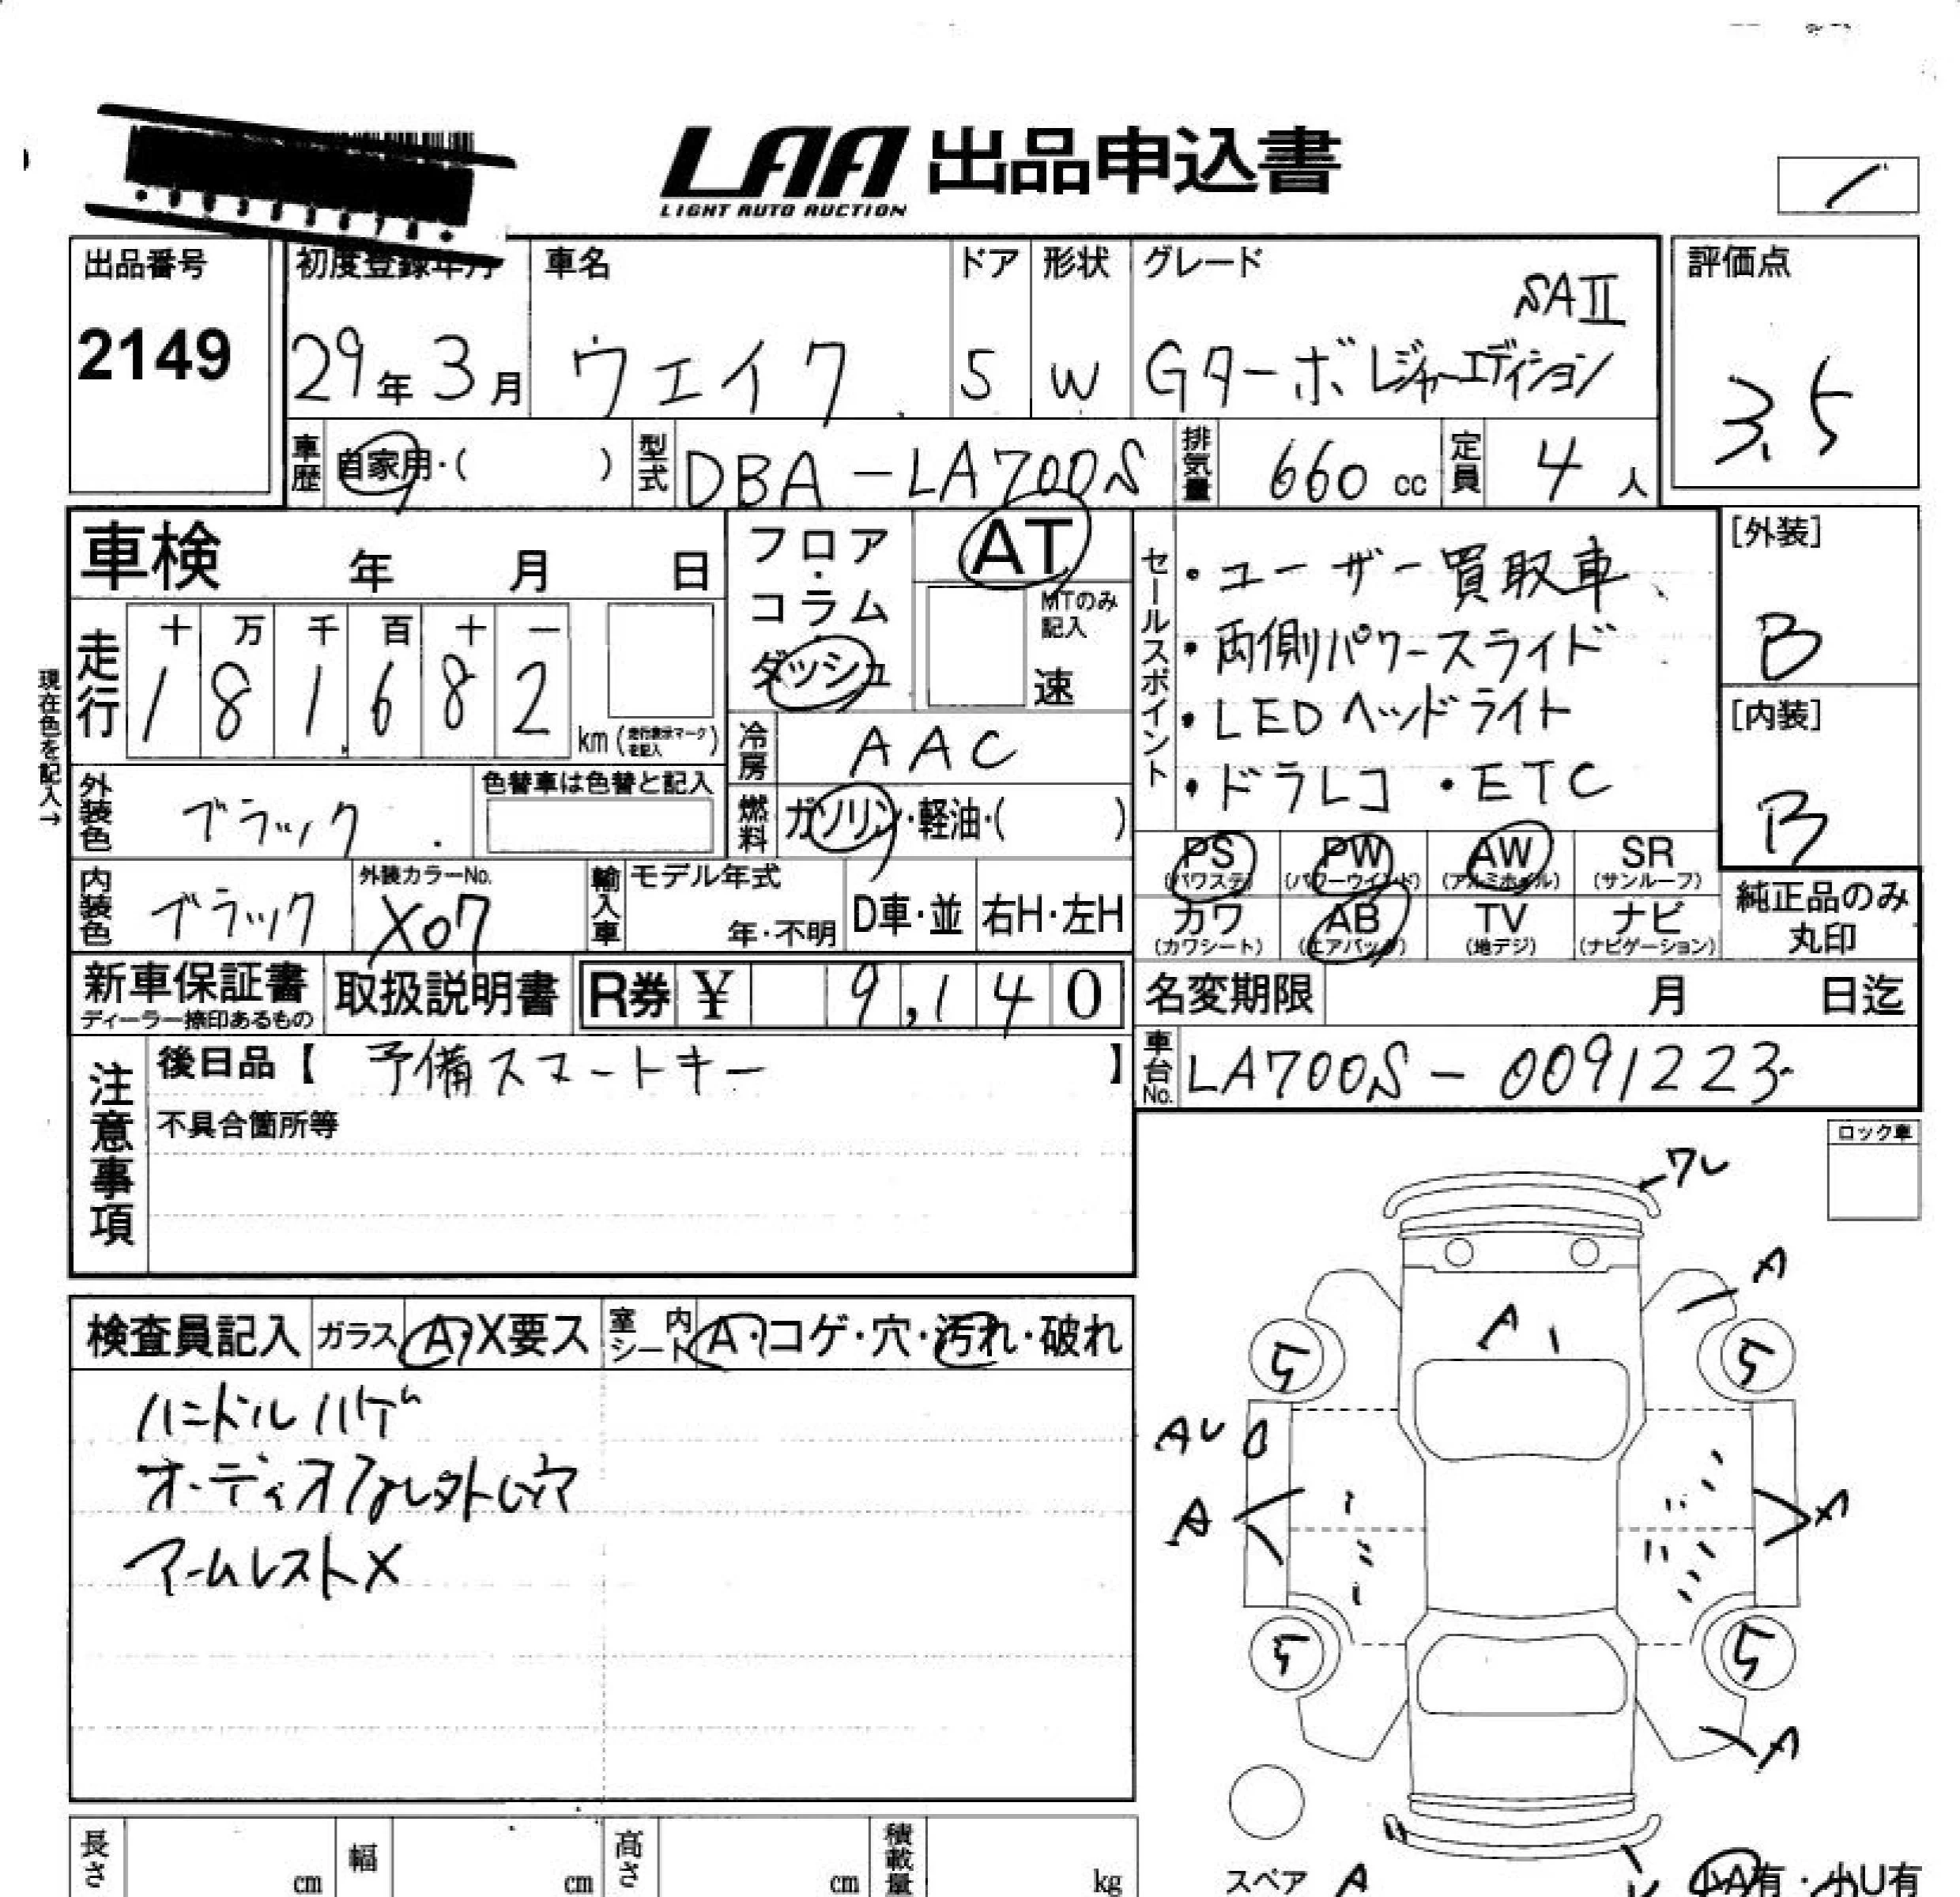 LAA 出品申込書
LIGHT AUTO AUCTION
出品番号
2149
初度登録年月
29年3月
車名
ウェイク
ドア
5
形状
W
グレード
SAII
Gターボ レジャーエディション
評価点
3.5
車歴
自家用・( )
型式
DBA-LA700S
排気量
660 cc
定員
4人
車検 年 月 日
フロア・コラム・ダッシュ
AT
MTのみ記入
速
セールスポイント
・ユーザー買取車
・両側パワースライド
・LEDヘッドライト
・ドラレコ ・ETC
[外装]
B
[内装]
B
現在色を記入→
走行
十 万 千 百 十 一
1 8 1 6 8 2
km (走行表示マークを記入)
冷房
AAC
燃料
ガソリン・軽油・( )
外装色
ブラック
色替車は色替と記入
内装色
ブラック
外装カラーNo.
X07
輸入車
モデル年式
年・不明
D車・並
右H・左H
PS (パワステ)
PW (パワーウインド)
AW (アルミホイル)
SR (サンルーフ)
カワ (カワシート)
AB (エアバック)
TV (地デジ)
ナビ (ナビゲーション)
純正品のみ丸印
新車保証書
ディーラー捺印あるもの
取扱説明書
R券 ¥ 9,140
名変期限 月 日迄
車台No.
LA700S-0091223
注意事項
後日品【 予備スマートキー 】
不具合箇所等
ロック車
検査員記入
ガラス
A・X要ス
室内シート
A・コゲ・穴・汚れ・破れ
ハンドルハゲ
オーディオなし外し穴
アームレストX
ワレ
A
A1
5
5
AU
A
A
5
5
A
スペア
A
小A有・小U有
長さ cm
幅 cm
高さ cm
積載量 kg